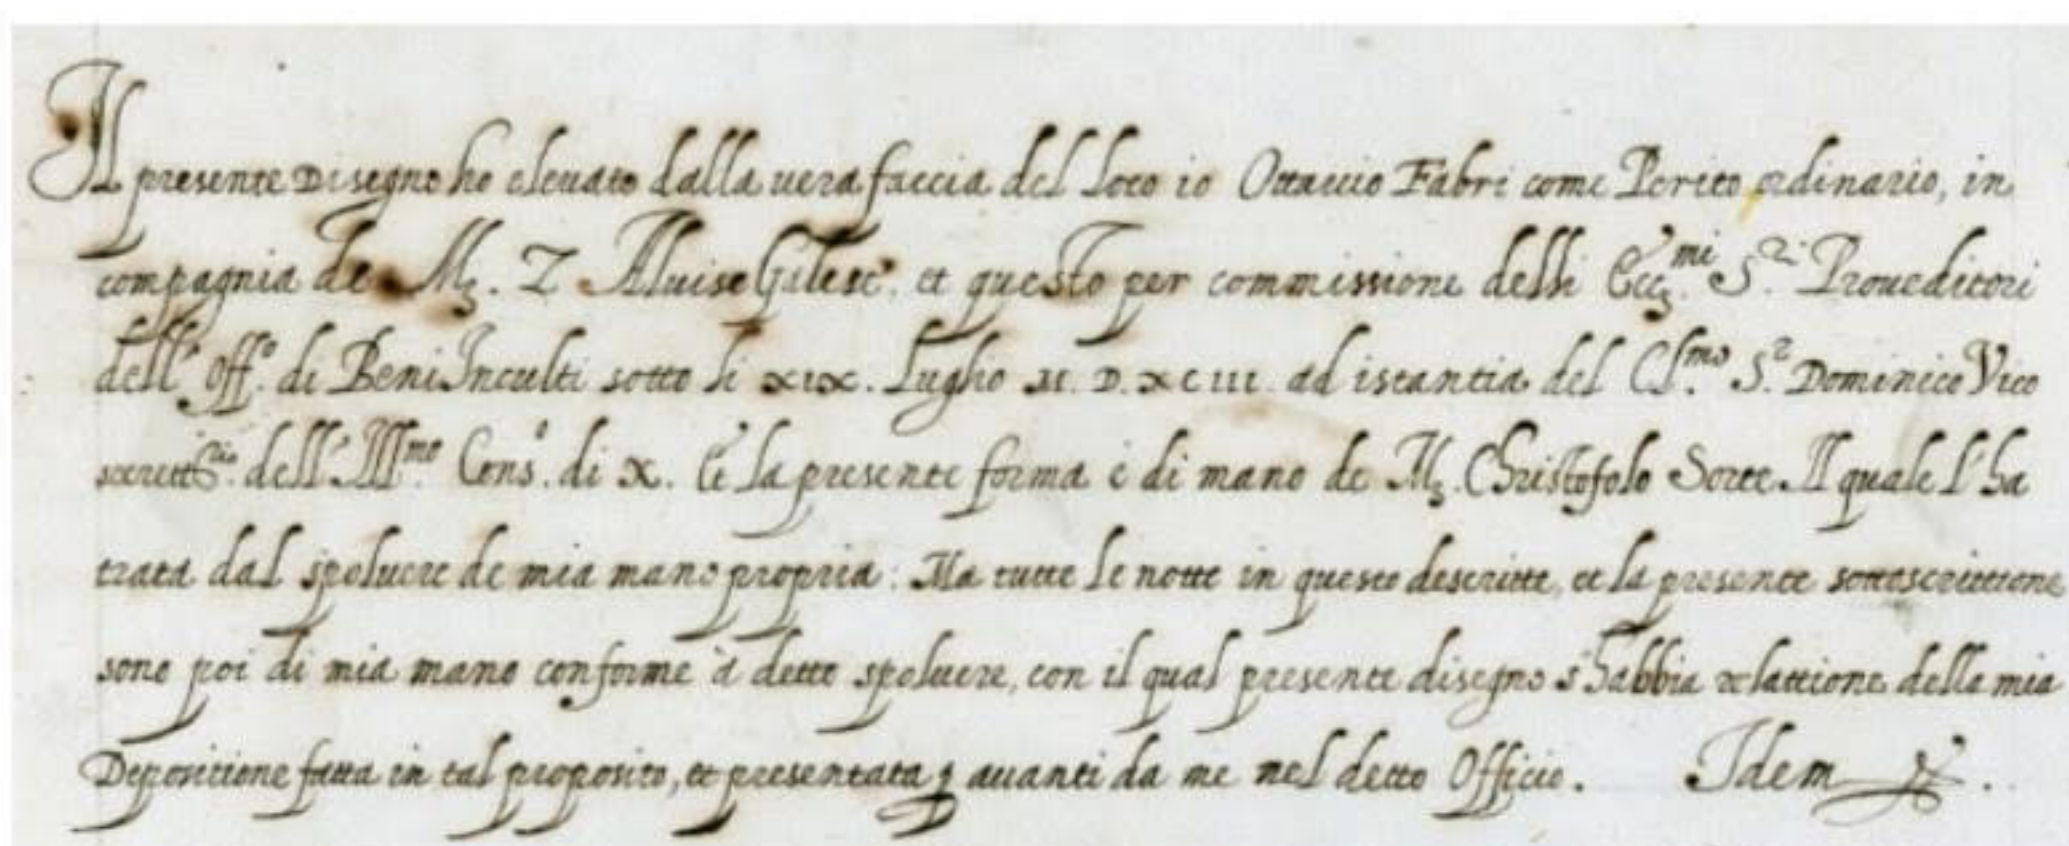 Il presente Disegno ho eleuato dalla uera faccia del loco io Ottauio Fabri come Perito ordinario, in
compagnia de M. Z Aluise Galese. et questo per commissione delli Ecc.mi S.ri Proueditori
dell' Off.o di Beni Inculti sotto li XIX. Luglio M. D. XCIII. ad istantia del Cl.mo S.r Dominico Vico
secrett.rio dell' Ill.mo Cons.o di X. Et la presente forma è di mano de M. Christofolo Sorte. Il quale l'ha
trata dal spoluere de mia mano propria: Ma tutte le notte in questo descritte, et la presente sottoscrittione
sono poi di mia mano conforme à detto spoluere, con il qual presente disegno s'habbia relattione della mia
Depositione fatta in tal proposito, et presentata p auanti da me nel detto Officio. Idem